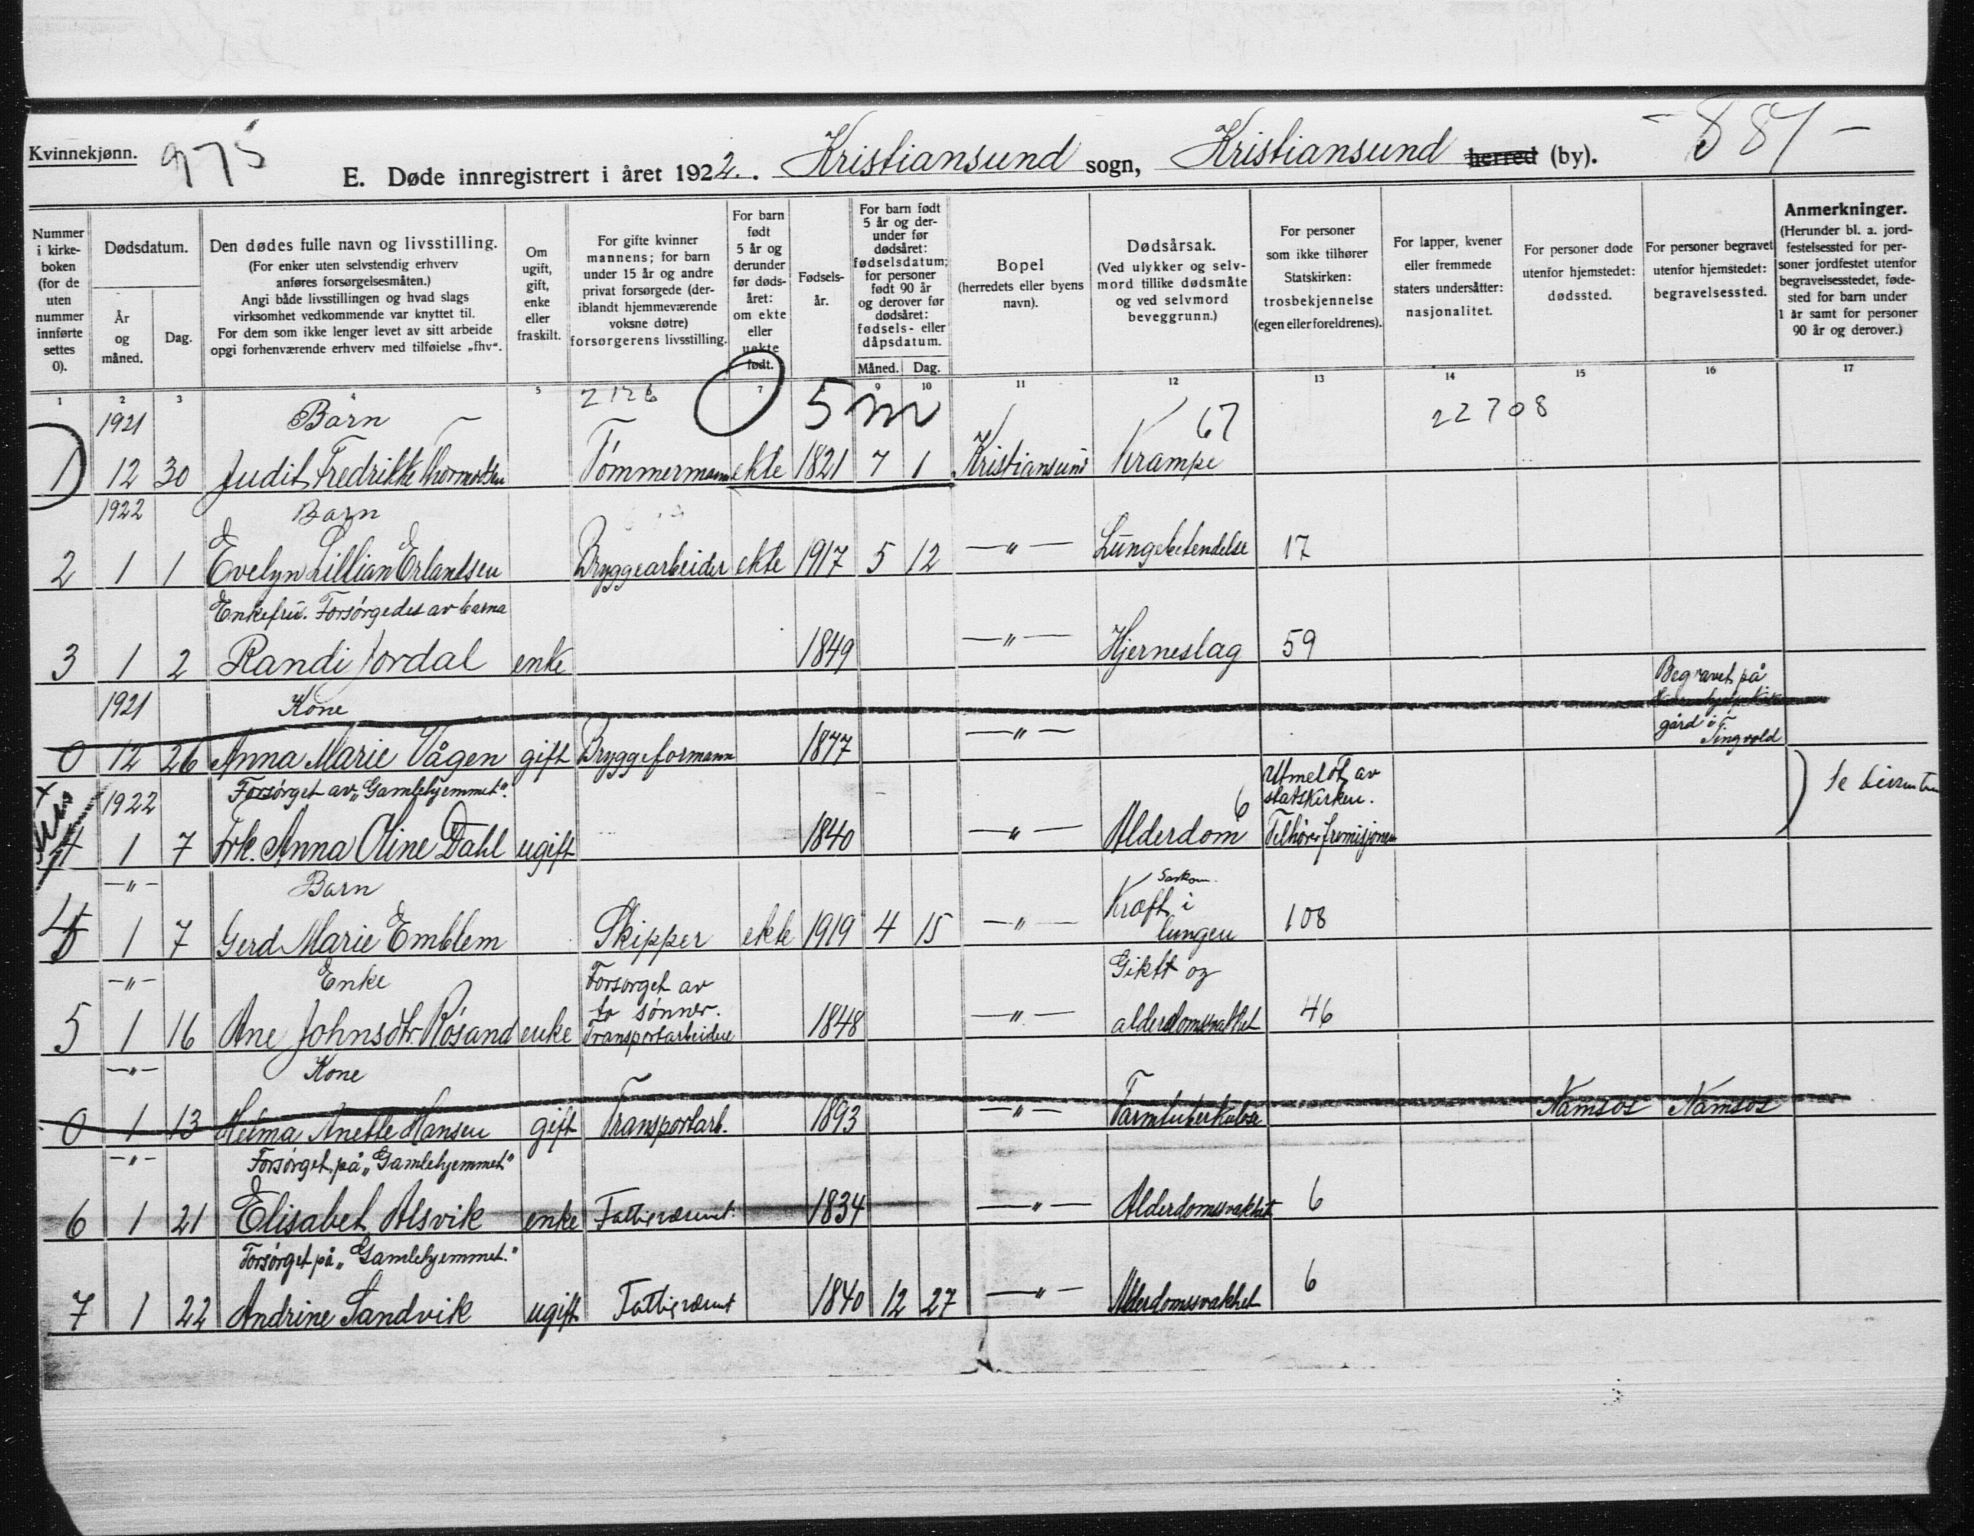 Kvinnekjønn.
975
E. Døde innregistrert i året 1922. Kristiansund sogn, Kristiansund herred (by).
- 887 -
Nummer i kirkeboken (for de uten nummer innførte settes 0).
Dødsdatum.
År og måned.
Dag.
Den dødes fulle navn og livsstilling.
(For enker uten selvstendig erhverv anføres forsørgelsesmåten.)
Angi både livsstillingen og hvad slags virksomhet vedkommende var knyttet til.
For dem som ikke lenger levet av sitt arbeide opgi forhenværende erhverv med tilføielse „fhv".
Om ugift, gift, enke eller fraskilt.
For gifte kvinner mannens; for barn under 15 år og andre privat forsørgede (deriblandt hjemmeværende voksne døtre) forsørgerens livsstilling.
For barn født 5 år og derunder før dødsåret: om ekte eller uekte født.
Fødselsår.
For barn født 5 år og derunder før dødsåret: fødselsdatum; for personer født 90 år og derover før dødsåret: fødsels- eller dåpsdatum.
Måned. Dag.
Bopel
(herredets eller byens navn).
Dødsårsak.
(Ved ulykker og selvmord tillike dødsmåte og ved selvmord beveggrunn.)
For personer som ikke tilhører Statskirken: trosbekjennelse (egen eller foreldrenes).
For lapper, kvener eller fremmede staters undersåtter: nasjonalitet.
For personer døde utenfor hjemstedet: dødssted.
For personer begravet utenfor hjemstedet: begravelsessted.
Anmerkninger.
(Herunder bl. a. jordfestelsessted for personer jordfestet utenfor begravelsesstedet, fødested for barn under 1 år samt for personer 90 år og derover.)
1 2 3 4 5 7 9 10 11 12 13 14 15 16 17
2126
5 m
1921 Barn 67 22708
1 12 30 Judit Fredrikke Thormodsen Tømmermann ekte 1821 7 1 Kristiansund Krampe
1922 Barn
2 1 1 Evelyn Lillian Erlandsen Bryggearbeider ekte 1917 5 12 —„— Lungebetendelse 17
Enkefru. Forsørgedes av barna
3 1 2 Randi Jordal enke 1849 —„— Hjerneslag 59
1921 Kone Begravet på
gård i Tingvold
0 12 26 Anna Marie Vågen gift Bryggeformann 1877 —„—
1922 Forsørget av „Gamlehjemmet". 6 Utmeldt av statskirken.
4 1 7 Frk. Anna Oline Dahl ugift 1840 —„— Alderdom Tilhører frimisjonen
-„- Barn
4 1 7 Gerd Marie Emblem Skipper ekte 1919 4 15 —„— Kræft i lungen Sarkom. 108
-„- Enke Forsørget av to sønner. Gikt og
5 1 16 Ane Johnsdtr. Røsand enke Transportarbeidere 1848 —„— alderdomssvakhet 46
-„- Kone
0 1 13 Helma Anette Hansen gift Transportarb. 1893 —„— Tarmtuberkulose Namsos Namsos
-„- Forsørget på „Gamlehjemmet"
6 1 21 Elisabet Alsvik enke 1834 —„— Alderdomssvakhet 6
Forsørget på „Gamlehjemmet."
7 1 22 Andrine Sandvik ugift 1840 12 27 —„— Alderdomssvakhet 6